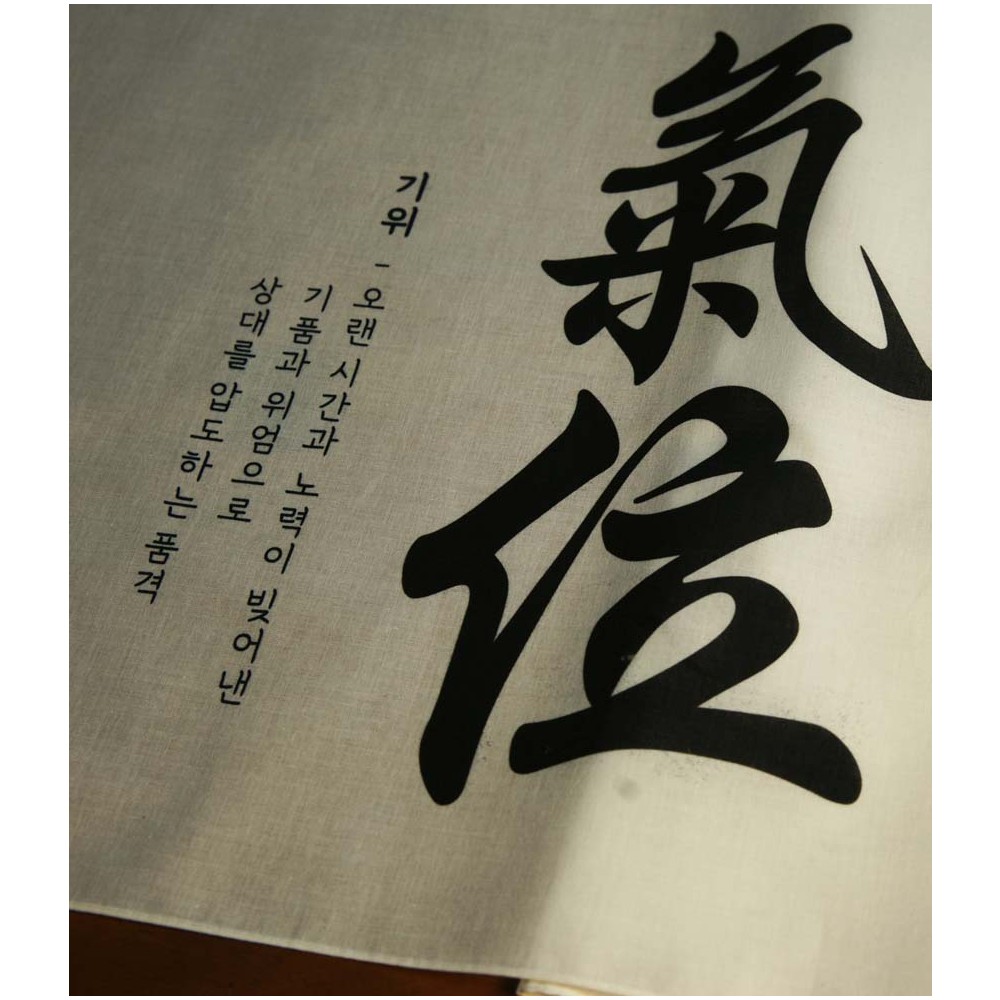 氣位
기위 -
오랜 시간과 노력이 빚어낸
기품과 위엄으로
상대를 압도하는 품격